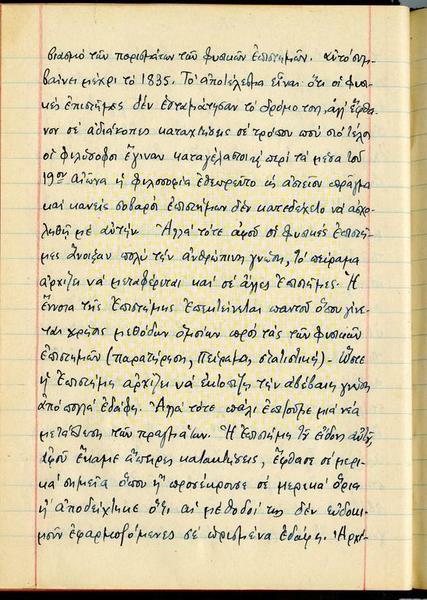 βιασμὸ τῶν πορισμάτων τῶν φυσικῶν ἐπιστημῶν. αὐτὸ συμ-
βαίνει μέχρι τὸ 1835. Τὸ ἀποτέλεσμα εἶναι ὅτι οἱ φυσι-
κὲς ἐπιστῆμες δὲν ἐσταμάτησαν τὸ δρόμο των, ἀλλ' ἔφθα-
νον σὲ ἀδιάκοπες κατακτήσεις σὲ τρόπον ποὺ στὸ τέλος
οἱ φιλόσοφοι ἔγιναν καταγέλαστοι καὶ περὶ τὰ μέσα τοῦ
19ου αἰῶνα ἡ φιλοσοφία ἐθεωρεῖτο ὡς ἀστεῖον πρᾶγμα
καὶ κανεὶς σοβαρὸς ἐπιστήμων δὲν κατεδέχετο νὰ ἀσχο-
ληθῇ μὲ αὐτήν. Ἀλλὰ τότε ἀφοῦ οἱ φυσικὲς ἐπιστῆ-
μες ἄνοιξαν πολὺ τὴν ἀνθρώπινη γνώση, τὸ πείραμα
ἀρχίζει νὰ μεταφέρεται καὶ σὲ ἄλλες ἐπιστῆμες. Ἡ
ἔννοια τῆς ἐπιστήμης ἐπεκτείνεται παντοῦ ὅπου γίνε-
ται χρῆσις μεθόδων ὁμοίων πρὸς τὰς τῶν φυσικῶν
ἐπιστημῶν (παρατήρηση, πείραμα, στατιστική) - Ὥστε
ἡ ἐπιστήμη ἀρχίζει νὰ ἐκτοπίζῃ τὴν ἀβέβαιη γνώση
ἀπὸ πολλὰ ἐδάφη. Ἀλλὰ τότε πάλι ἐπῆλθε μιὰ νέα
μετάπτωση τῶν πραγμάτων. Ἡ ἐπιστήμη τοῦ εἴδους αὐτοῦ,
ἀφοῦ ἔκαμε ἄπειρες κατακτήσεις, ἔφθασε σὲ μερι-
κὰ σημεῖα ὅπου ἢ προσέκρουσε σὲ μερικὰ ὅρια
ἢ ἀποδείχτηκε ὅτι αἱ μέθοδοί της δὲν εὐδοκι-
μοῦν ἐφαρμοζόμενες σὲ ὡρισμένα ἐδάφη. Ἀρκε-